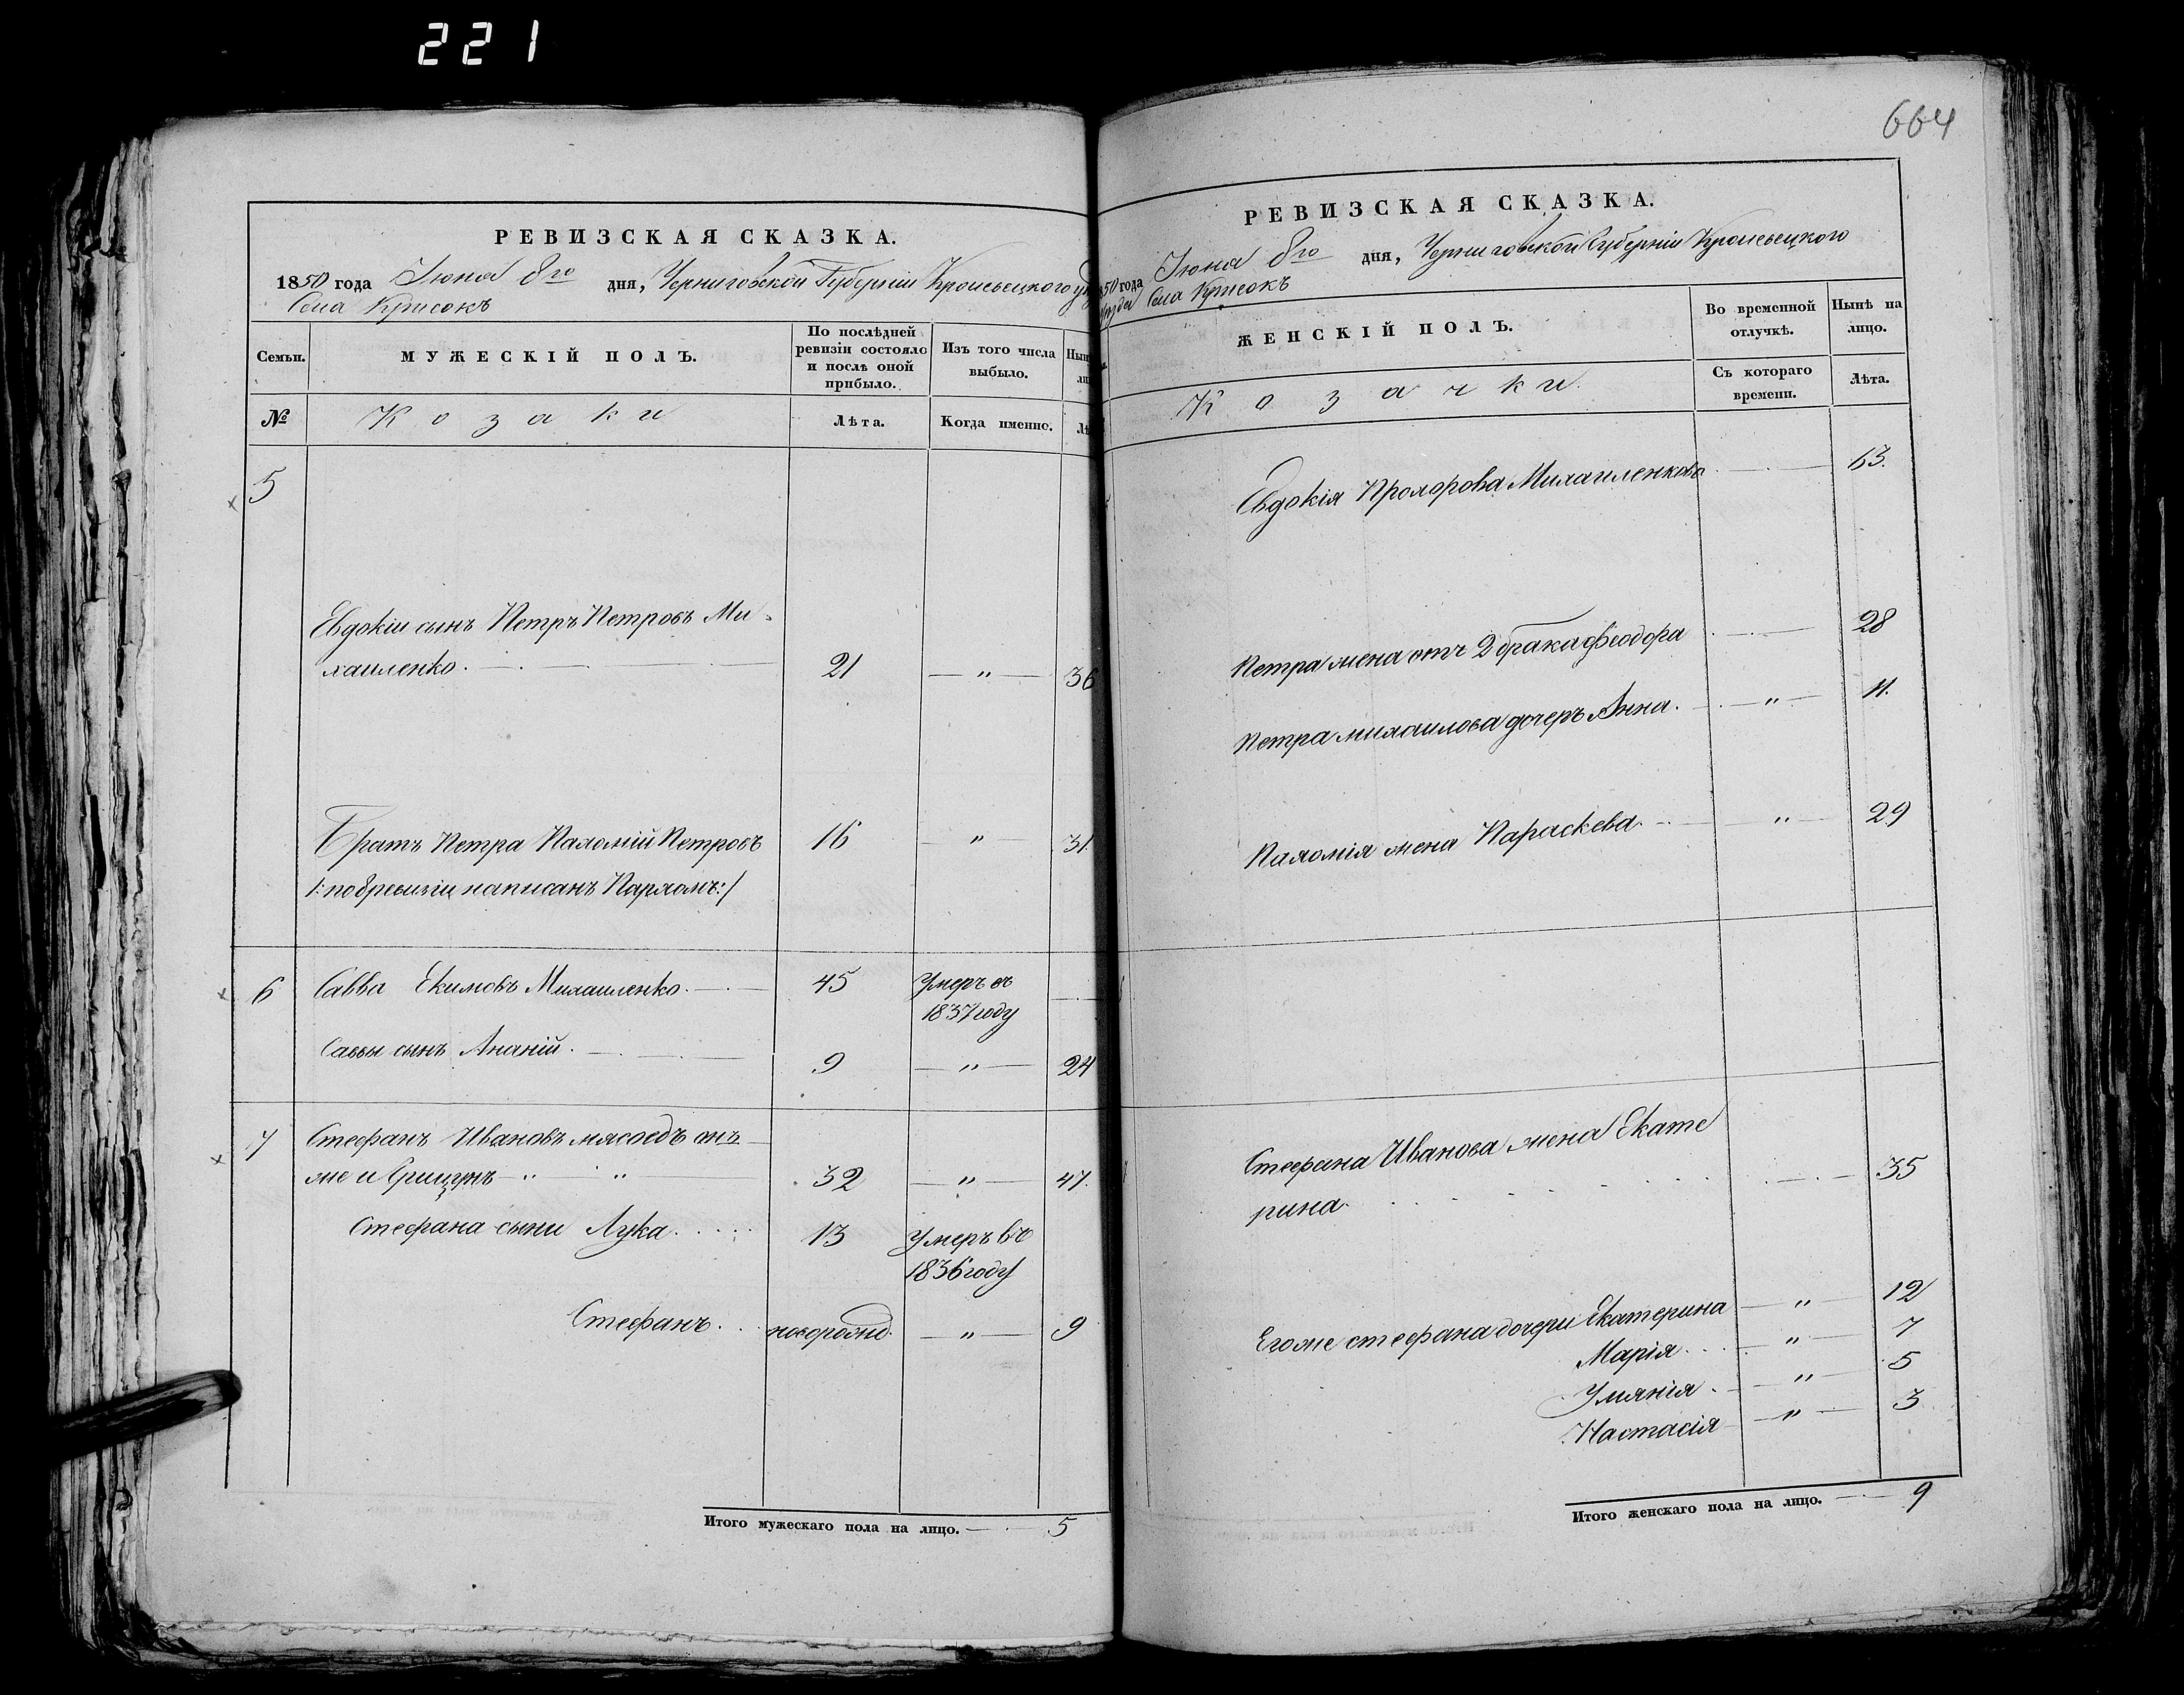 221
РЕВИЗСКАЯ СКАЗКА.
1850 года Іюня 8го дня, Черниговской Губерніи Кролевецкого
Села
Семьи.
МУЖЕСКІЙ ПОЛЪ.
По послѣдней ревизіи состояло и послѣ оной прибыло.
Изъ того числа выбыло.
№
Козаки
Лѣта.
Когда именно.
5
Евдокіи сынъ Петръ Петровъ Ми-
хаиленко. 21 — " — 36
Братъ Петра Пахомій Петровъ 16 " 31
/:по 8 ревизіи написанъ Пархомъ:/
6 Савва Екимовъ Михаиленко. 45 Умеръ въ
1837 году
Саввы сынъ Ананій. 9 — " — 24
7 Стефанъ Ивановъ Мясоедъ онъ
же и Грицунъ — " " 32 — " — 47.
Стефана сыни Лука. 13 Умеръ въ
1836 году
Стефанъ. новорожд. — " — 9
Итого мужескаго пола на лицо. — 5
664
РЕВИЗСКАЯ СКАЗКА.
1850 года Іюня 8го дня, Черниговской Губерніи Кролевецкого
Уѣзда Села
ЖЕНСКІЙ ПОЛЪ.
Во временной отлучкѣ.
Нынѣ на лицо.
Козачки
Съ котораго времени.
Лѣта.
Евдокія Прохорова Михаиленкова 63.
Петра жена отъ 2 брака Феодора 28
Петра Михаилова дочеръ Анна. — " — 11.
Пахомія жена Параскева. " 29
Стефана Иванова жена Екате
рина. 35
Его же Стефана дочери Екатерина — " — 12
Марія. " 7
Уліянія. — " — 5
Настасія — " — 3
Итого женскаго пола на лицо. — 9